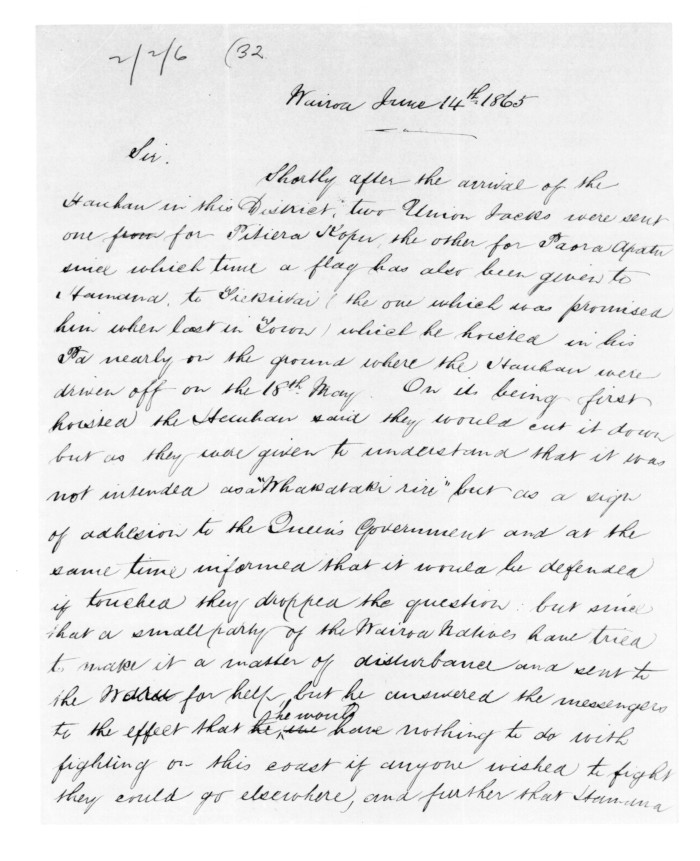 2/2/6 (32
Wairoa June 14th 1865
Sir.
Shortly after the arrival of the
Hauhau in this District, two Union Jacks were sent
one from for Pitiera Kopu, the other for Paora Apatu
since which time a flag has also been given to
Hamana, to (the one which was promised
him when last in Town) which he hoisted in his
Pa nearly on the ground where the Hauhau were
driven off on the 18th May. On its being first
hoisted the Hauhau said they would cut it down
but as they were given to understand that it was
not intended as a "Whakataki riri" but as a sign
of adhesion to the Queen's Government and at the
same time informed that it would be defended
if touched they dropped the question: but since
that a small party of the Wairoa Natives have tried
to make it a matter of disturbance and sent to
the for help, but he answered the messengers
to the effect that he he would have nothing to do with
fighting on this coast if anyone wished to fight
they could go elsewhere, and further that Hamana